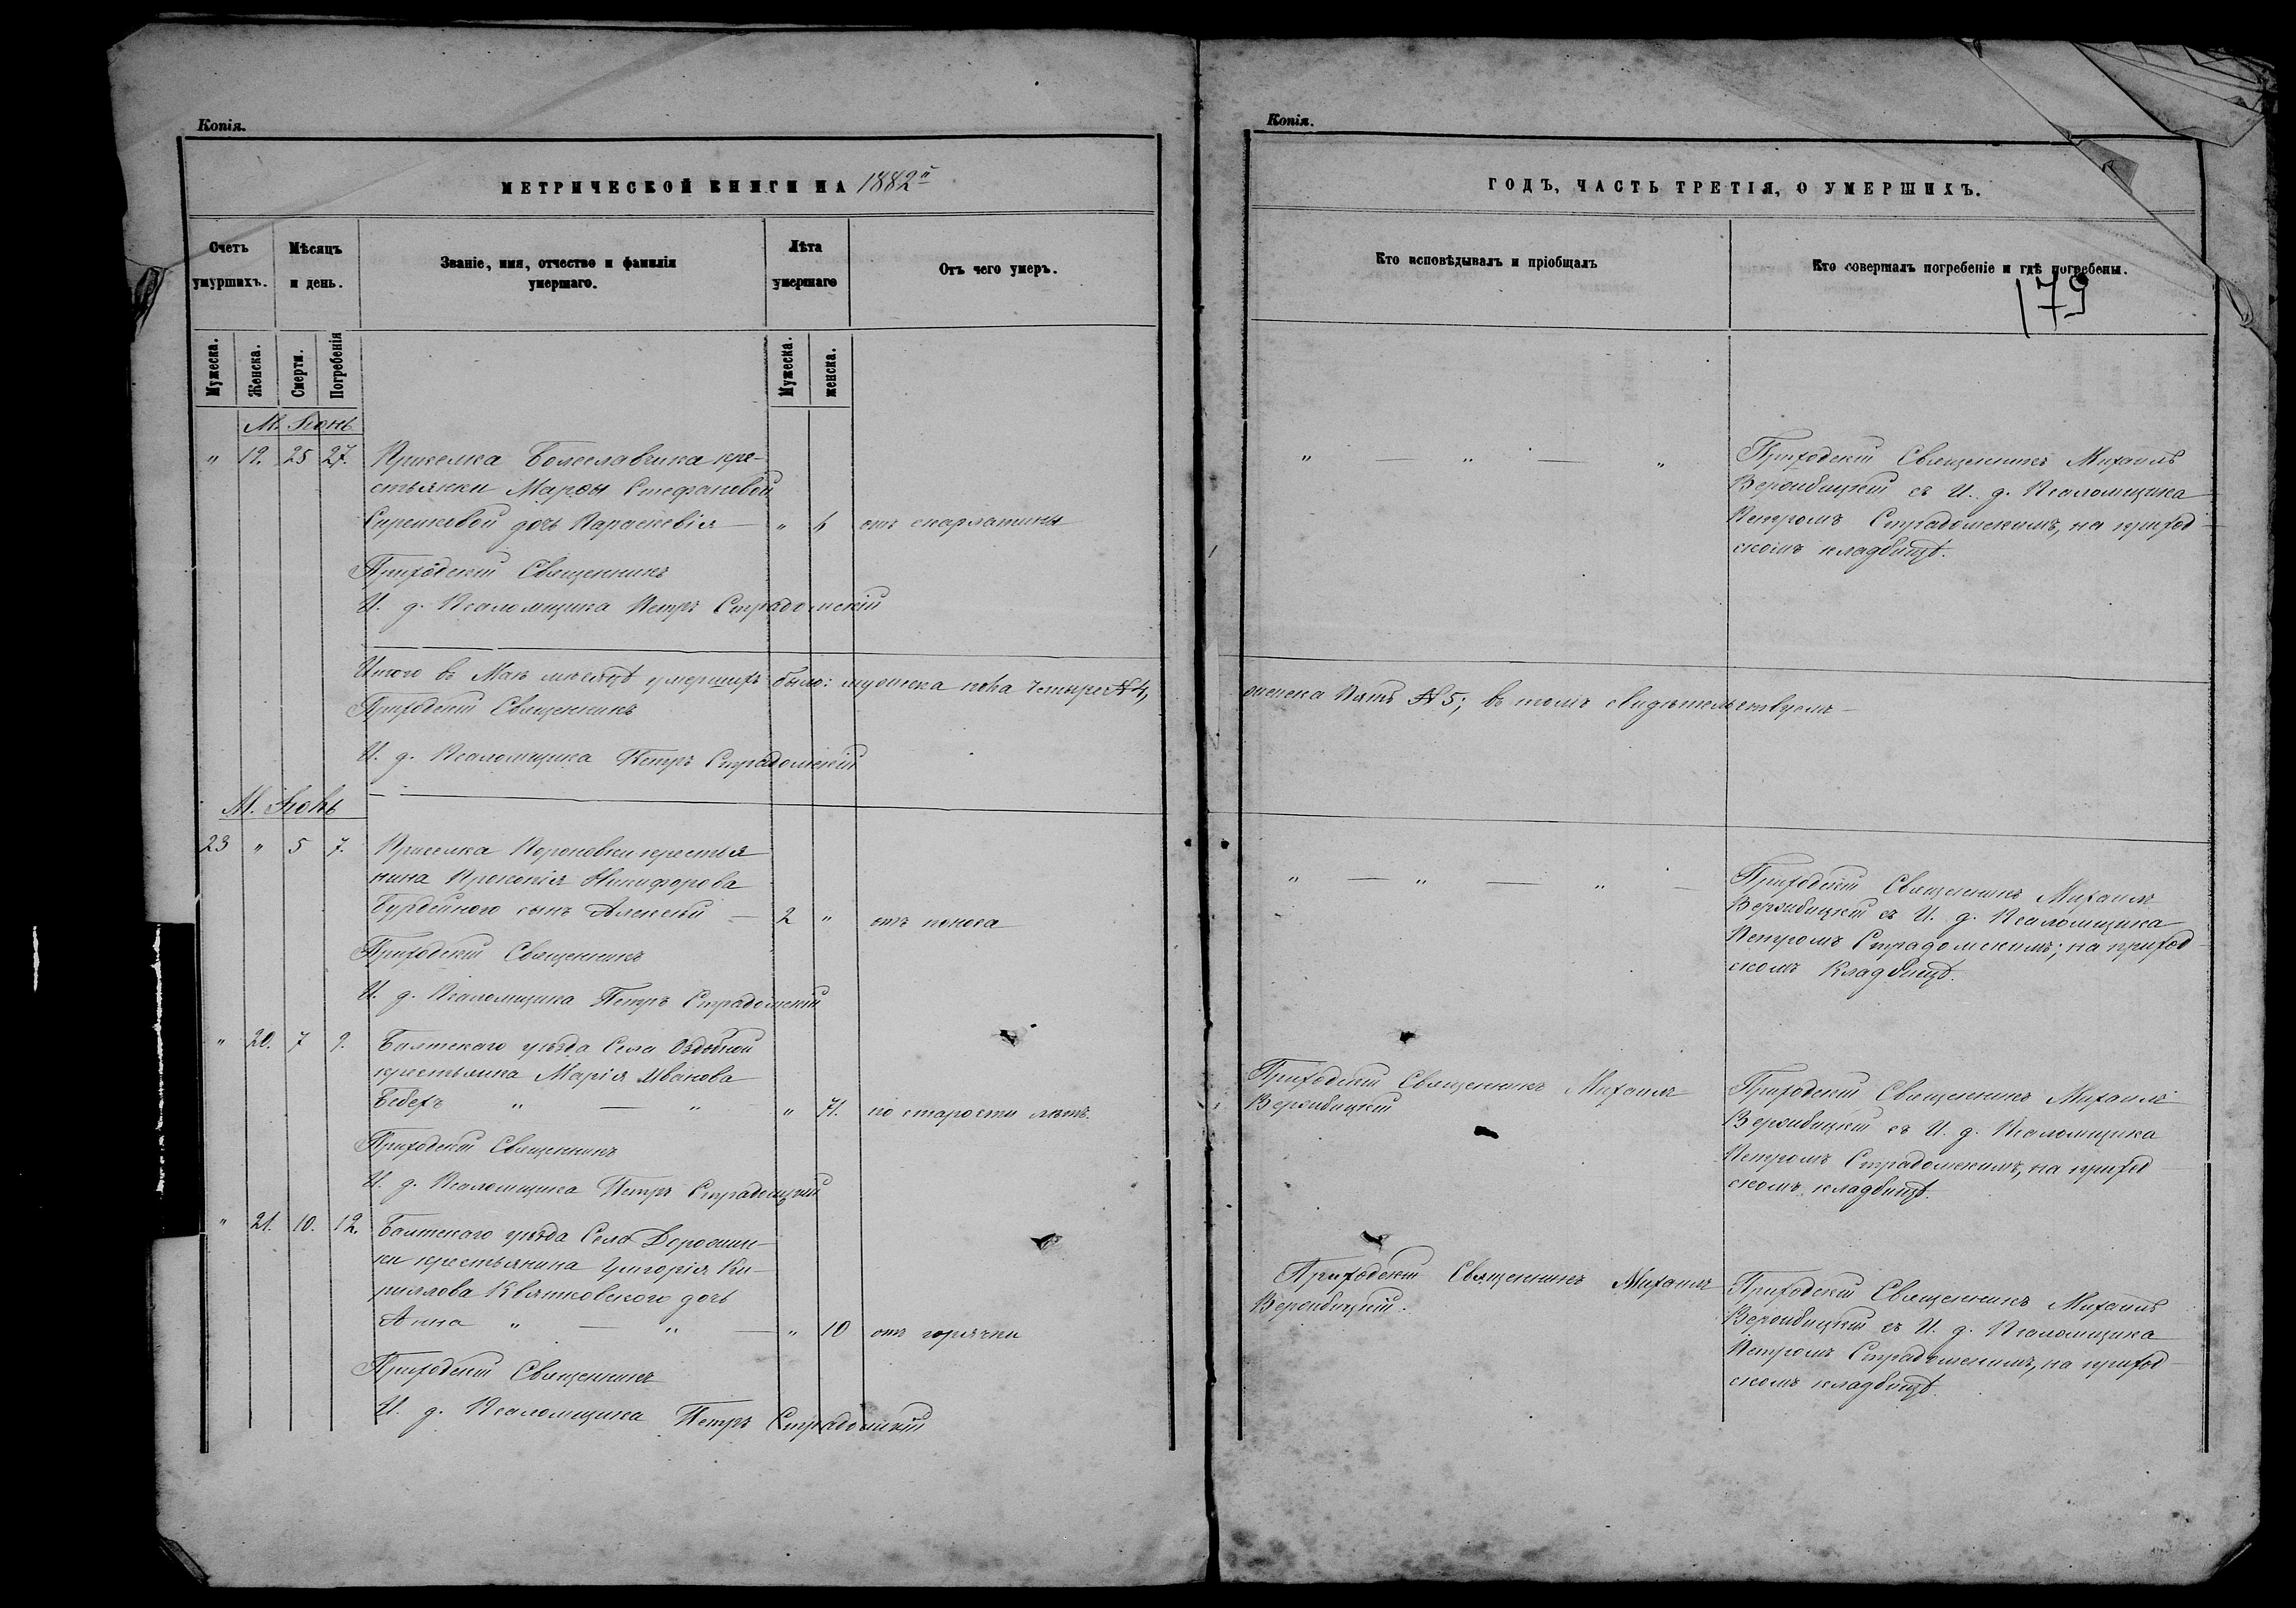 Копія.
МЕТРИЧЕСКОЙ КНИГИ НА 1882й
Счетъ умуршихъ.
Мѣсяцъ и день.
Званіе, имя, отчество и фамилія умершаго.
Лѣта умершаго
Отъ чего умеръ.
Мужеска.
Женска.
Смерти.
Погребенія
Мужеска.
женска.
" 19. 25 27. Приселка Болеславчика кре-
стьянки Марфы Стефановой
дочь Параскевія — " отъ скарлатины
Приходскій Священникъ
И. д. Псаломщика Петръ Страдомскій
Итого въ Маѣ мѣсяцѣ умершихъ было: мужеска пола четыре № 4,
Приходскій Священникъ
И. д. Псаломщика Петръ Страдомскій
М. Іюнь
23 " 5 7. Приселка крестья
нина Прокопія Никифорова
сынъ Алексѣй — 2 " отъ поноса
Приходскій Священникъ
И. д. Псаломщика Петръ Страдомскій
" 20. 7 9. Балтскаго уѣзда Села
крестьянка Марія Иванова
" — " " 71. по старости лѣтъ.
Приходскій Священникъ
И. д. Псаломщика Петръ Страдомскій
" 21. 10. 12. Балтскаго уѣзда Села
ки крестьянина Григорія Ки-
риллова Квятковского дочь
Анна " — " — " 10 отъ горячки
Приходскій Священникъ
И. д. Псаломщика Петръ Страдомскій
Копія.
ГОДЪ, ЧАСТЬ ТРЕТІЯ, О УМЕРШИХЪ.
Кто исповѣдывалъ и пріобщалъ
Кто совершалъ погребеніе и гдѣ погребены.
179
" — " — "
Приходскій Священникъ Михаилъ
Вержибицкій съ И. д. Псаломщика
Петромъ Страдомскимъ, на приход-
скомъ кладбищѣ.
женска Пять № 5; въ томъ свидѣтельствуемъ —
" — " — " —
Приходскій Священникъ Михаилъ
Вержибицкій съ И. д. Псаломщика
Петромъ Страдомскимъ; на приход-
скомъ Кладбищѣ.
Приходскій Священникъ Михаилъ
Вержибицкій
Приходскій Священникъ Михаилъ
Вержибицкій съ И. д. Псаломщика
Петромъ Страдомскимъ, на приход
скомъ кладбищѣ.
Приходскій Священникъ Михаилъ
Вержибицкій.
Приходскій Священникъ Михаилъ
Вержибицкій съ И. д. Псаломщика
Петромъ Страдомскимъ, на приход-
скомъ кладбищѣ.